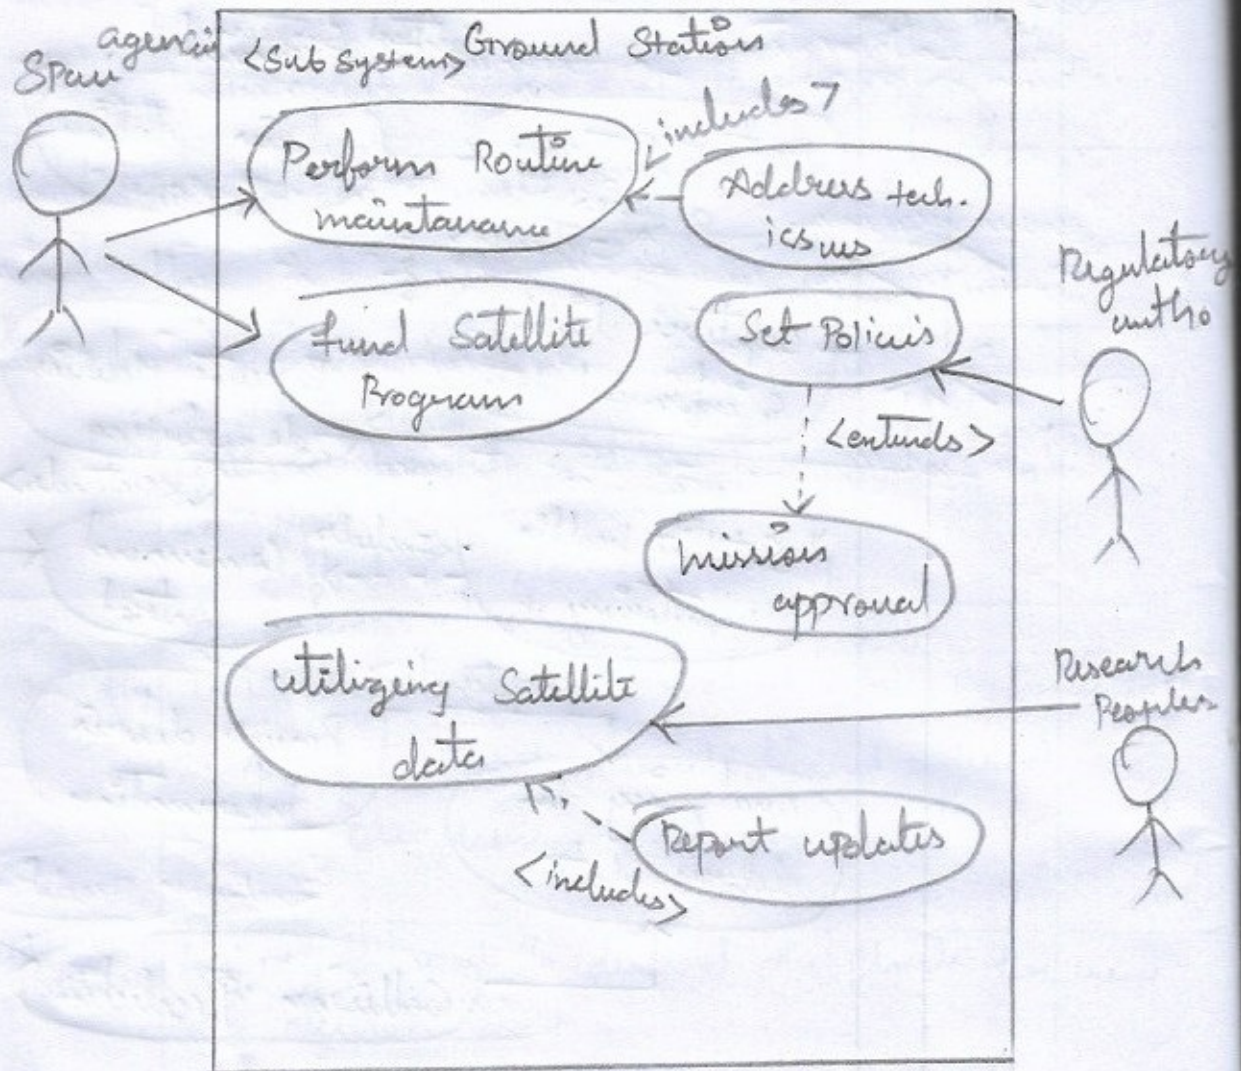 agencies
Space
<Sub System> Ground Station
Perform Routine
maintanance
includes>
Address tech.
issues
Fund Satellite
Program
Set Policies
Regulatory
autho
<extends>
mission
approval
utilizing Satellite
data
Research
Peoples
Report updates
<includes>